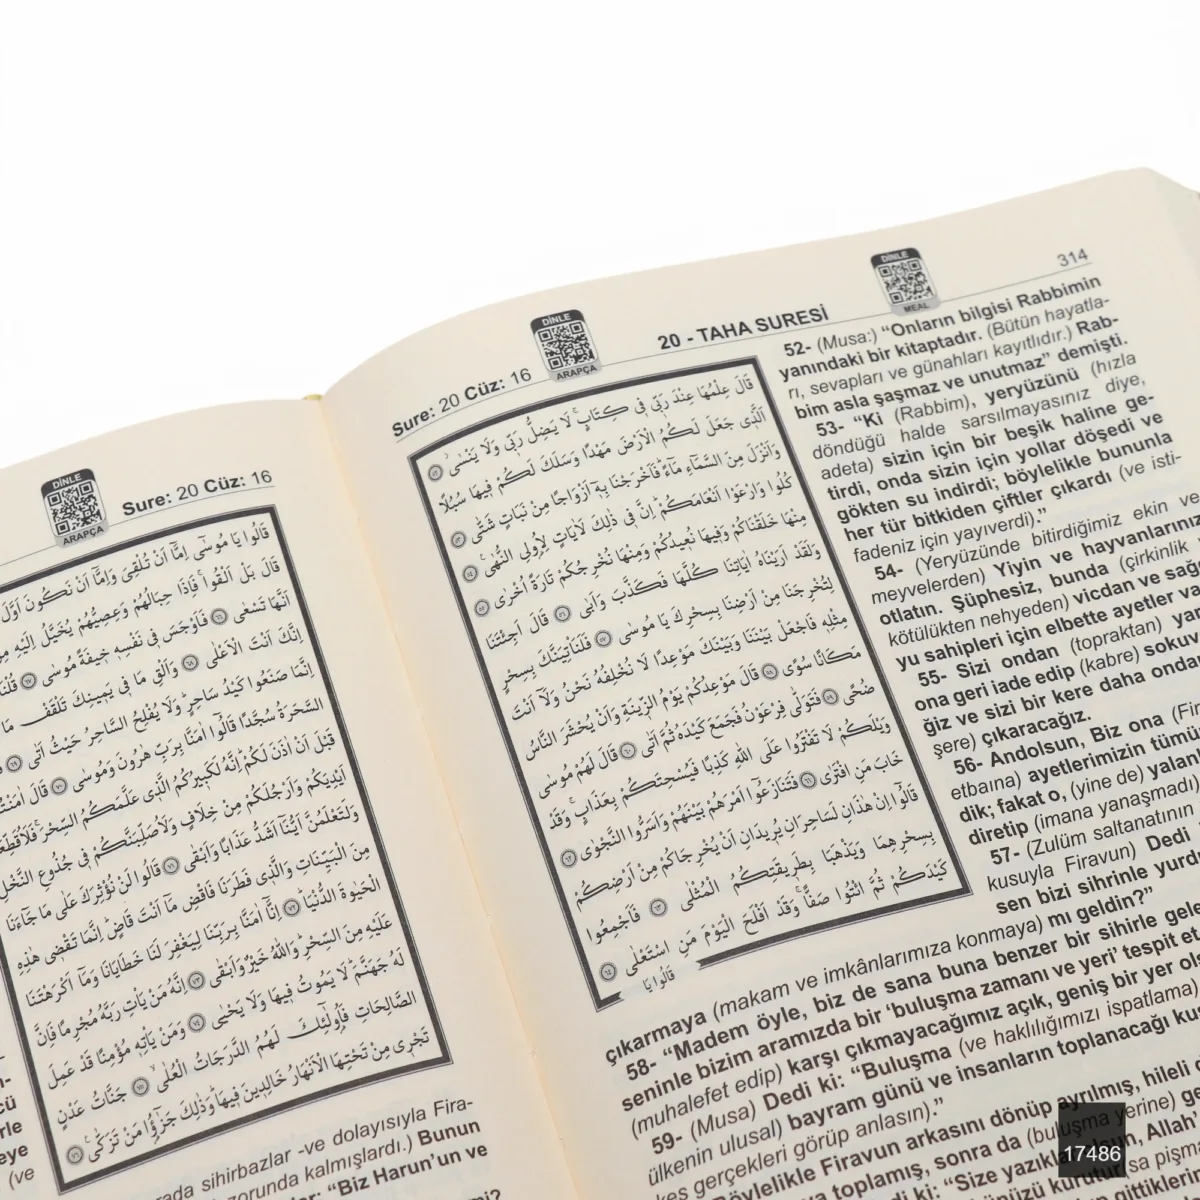 DİNLE
ARAPÇA
Sure: 20 Cüz: 16
قَالُوا يَا مُوسٰٓى اِمَّٓا اَنْ تُلْقِيَ وَاِمَّٓا اَنْ نَكُونَ اَوَّلَ
قَالَ بَلْ اَلْقُواۚ فَاِذَا حِبَالُهُمْ وَعِصِيُّهُمْ يُخَيَّلُ اِلَيْهِ مِنْ
اَنَّهَا تَسْعٰى ﴿٦٦﴾ فَاَوْجَسَ ف۪ي نَفْسِه۪ خ۪يفَةً مُوسٰى ﴿٦٧﴾ قُلْنَا
اِنَّكَ اَنْتَ الْاَعْلٰى ﴿٦٨﴾ وَاَلْقِ مَا ف۪ي يَم۪ينِكَ تَلْقَفْ مَا
اِنَّمَا صَنَعُوا كَيْدُ سَاحِرٍۜ وَلَا يُفْلِحُ السَّاحِرُ حَيْثُ اَتٰى ﴿٦٩﴾
السَّحَرَةُ سُجَّدًا قَالُٓوا اٰمَنَّا بِرَبِّ هٰرُونَ وَمُوسٰى ﴿٧٠﴾ قَالَ اٰمَنْتُمْ
قَبْلَ اَنْ اٰذَنَ لَكُمْۜ اِنَّهُ لَكَب۪يرُكُمُ الَّذ۪ي عَلَّمَكُمُ السِّحْرَۚ فَلَاُقَطِّعَنَّ
اَيْدِيَكُمْ وَاَرْجُلَكُمْ مِنْ خِلَافٍ وَلَاُصَلِّبَنَّكُمْ ف۪ي جُذُوعِ النَّخْلِۘ
وَلَتَعْلَمُنَّ اَيُّنَٓا اَشَدُّ عَذَابًا وَاَبْقٰى ﴿٧١﴾ قَالُوا لَنْ نُؤْثِرَكَ عَلٰى مَا جَٓاءَنَا
مِنَ الْبَيِّنَاتِ وَالَّذ۪ي فَطَرَنَا فَاقْضِ مَٓا اَنْتَ قَاضٍۜ اِنَّمَا تَقْض۪ي هٰذِهِ
الْحَيٰوةَ الدُّنْيَا ﴿٧٢﴾ اِنَّٓا اٰمَنَّا بِرَبِّنَا لِيَغْفِرَ لَنَا خَطَايَانَا وَمَٓا اَكْرَهْتَنَا
عَلَيْهِ مِنَ السِّحْرِۜ وَاللّٰهُ خَيْرٌ وَاَبْقٰى ﴿٧٣﴾ اِنَّهُ مَنْ يَأْتِ رَبَّهُ مُجْرِمًا فَاِنَّ
لَهُ جَهَنَّمَۜ لَا يَمُوتُ ف۪يهَا وَلَا يَحْيٰى ﴿٧٤﴾ وَمَنْ يَأْتِه۪ مُؤْمِنًا قَدْ عَمِلَ
الصَّالِحَاتِ فَاُو۬لٰٓئِكَ لَهُمُ الدَّرَجَاتُ الْعُلٰى ﴿٧٥﴾ جَنَّاتُ عَدْنٍ
تَجْر۪ي مِنْ تَحْتِهَا الْاَنْهَارُ خَالِد۪ينَ ف۪يهَاۜ وَذٰلِكَ جَزٰٓؤُ۬ا مَنْ تَزَكّٰى ﴿٧٦﴾
-ve dolayısıyla Fira-
sihirbazlar
zorunda kalmışlardı.) Bunun
“Biz Harun’un ve
Sure: 20 Cüz: 16
DİNLE
ARAPÇA
20 - TAHA SURESİ
DİNLE
MEAL
314
قَالَ عِلْمُهَا عِنْدَ رَبّ۪ي ف۪ي كِتَابٍۚ لَا يَضِلُّ رَبّ۪ي وَلَا يَنْسٰى ﴿٥٢﴾
اَلَّذ۪ي جَعَلَ لَكُمُ الْاَرْضَ مَهْدًا وَسَلَكَ لَكُمْ ف۪يهَا سُبُلًا
وَاَنْزَلَ مِنَ السَّمَٓاءِ مَٓاءًۜ فَاَخْرَجْنَا بِه۪ٓ اَزْوَاجًا مِنْ نَبَاتٍ شَتّٰى ﴿٥٣﴾
كُلُوا وَارْعَوْا اَنْعَامَكُمْۜ اِنَّ ف۪ي ذٰلِكَ لَاٰيَاتٍ لِاُو۬لِي النُّهٰى ﴿٥٤﴾
مِنْهَا خَلَقْنَاكُمْ وَف۪يهَا نُع۪يدُكُمْ وَمِنْهَا نُخْرِجُكُمْ تَارَةً اُخْرٰى ﴿٥٥﴾
وَلَقَدْ اَرَيْنَاهُ اٰيَاتِنَا كُلَّهَا فَكَذَّبَ وَاَبٰى ﴿٥٦﴾ قَالَ اَجِئْتَنَا
لِتُخْرِجَنَا مِنْ اَرْضِنَا بِسِحْرِكَ يَا مُوسٰى ﴿٥٧﴾ فَلَنَأْتِيَنَّكَ بِسِحْرٍ
مِثْلِه۪ فَاجْعَلْ بَيْنَنَا وَبَيْنَكَ مَوْعِدًا لَا نُخْلِفُهُ نَحْنُ وَلَٓا اَنْتَ
مَكَانًا سُوًى ﴿٥٨﴾ قَالَ مَوْعِدُكُمْ يَوْمُ الزّ۪ينَةِ وَاَنْ يُحْشَرَ النَّاسُ
ضُحًى ﴿٥٩﴾ فَتَوَلّٰى فِرْعَوْنُ فَجَمَعَ كَيْدَهُ ثُمَّ اَتٰى ﴿٦٠﴾ قَالَ لَهُمْ مُوسٰى
وَيْلَكُمْ لَا تَفْتَرُوا عَلَى اللّٰهِ كَذِبًا فَيُسْحِتَكُمْ بِعَذَابٍۚ وَقَدْ
خَابَ مَنِ افْتَرٰى ﴿٦١﴾ فَتَنَازَعُٓوا اَمْرَهُمْ بَيْنَهُمْ وَاَسَرُّوا النَّجْوٰى ﴿٦٢﴾
قَالُٓوا اِنْ هٰذَانِ لَسَاحِرَانِ يُر۪يدَانِ اَنْ يُخْرِجَاكُمْ مِنْ اَرْضِكُمْ
بِسِحْرِهِمَا وَيَذْهَبَا بِطَر۪يقَتِكُمُ الْمُثْلٰى ﴿٦٣﴾ فَاَجْمِعُوا
كَيْدَكُمْ ثُمَّ ائْتُوا صَفًّاۚ وَقَدْ اَفْلَحَ الْيَوْمَ مَنِ اسْتَعْلٰى ﴿٦٤﴾
قَالُوا يَا
52- (Musa:) “Onların bilgisi Rabbimin
yanındaki bir kitaptadır. (Bütün hayatla-
rı, sevapları ve günahları kayıtlıdır.) Rab-
bim asla şaşmaz ve unutmaz” demişti.
53- “Ki (Rabbim), yeryüzünü (hızla
döndüğü halde sarsılmayasınız diye,
adeta) sizin için bir beşik haline ge-
tirdi, onda sizin için yollar döşedi ve
gökten su indirdi; böylelikle bununla
her tür bitkiden çiftler çıkardı (ve isti-
fadeniz için yayıverdi).”
54- (Yeryüzünde bitirdiğimiz ekin ve
meyvelerden) Yiyin ve hayvanlarınızı
otlatın. Şüphesiz, bunda (çirkinlik
kötülükten nehyeden) vicdan ve sağ
yu sahipleri için elbette ayetler va
55- Sizi ondan (topraktan) yar
ona geri iade edip (kabre) sokuv
ğiz ve sizi bir kere daha ondan
şere) çıkaracağız.
56- Andolsun, Biz ona (Fir
etbaına) ayetlerimizin tümün
dik; fakat o, (yine de) yalan
diretip (imana yanaşmadı)
57- (Zulüm saltanatının
kusuyla Firavun) Dedi
sen bizi sihrinle yurdu
çıkarmaya (makam ve imkânlarımıza konmaya) mı geldin?”
58- “Madem öyle, biz de sana buna benzer bir sihirle gele
seninle bizim aramızda bir ‘buluşma zamanı ve yeri’ tespit et
(muhalefet edip) karşı çıkmayacağımız açık, geniş bir yer ols
59- (Musa) Dedi ki: “Buluşma (ve haklılığımızı ispatlama)
ülkenin ulusal) bayram günü ve insanların toplanacağı kuş
kes gerçekleri görüp anlasın).”
Böylelikle Firavun arkasını dönüp ayrılmış, hileli
toplamış, sonra da (buluşma yerine) ge
ki: “Size yazıklar olsun, Allah’
17486